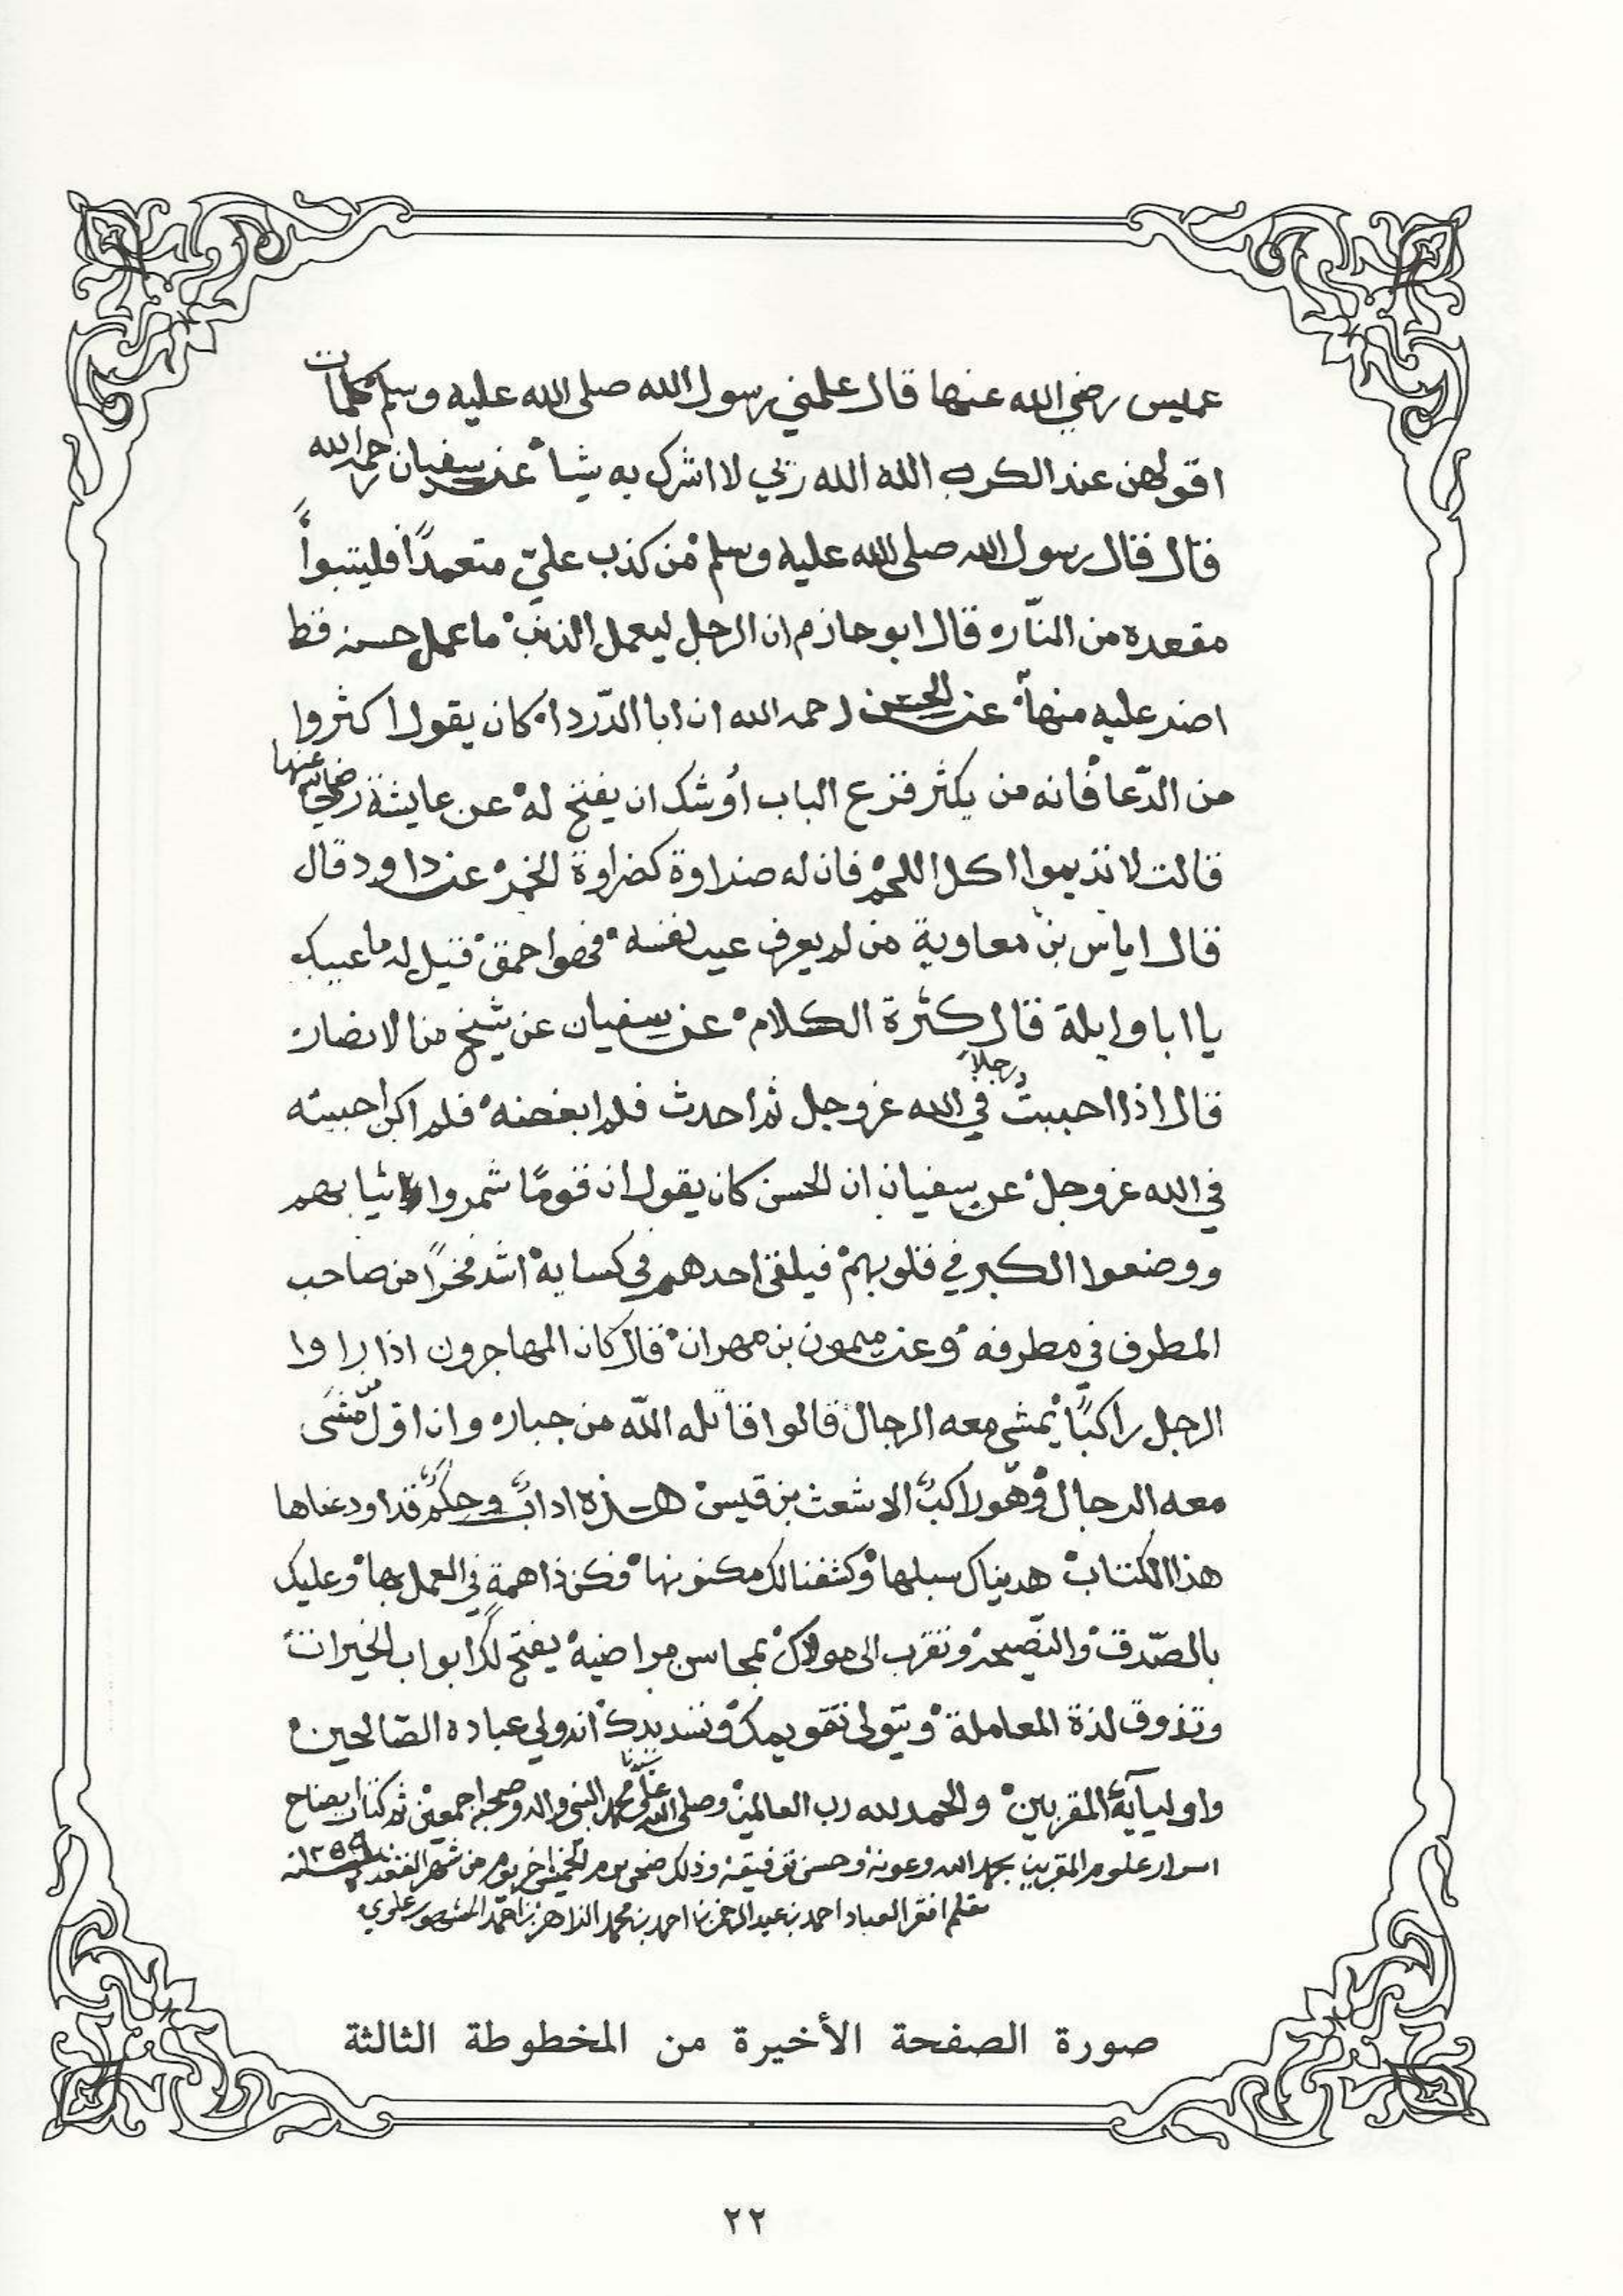 عميس رضي الله عنها قال علمني رسول الله صلى الله عليه وسلم كلمات
اقولهن عند الكرب الله الله ربي لا اشرك به شيأ عن سفيان رحمه الله
قال قال رسول الله صلى الله عليه وسلم من كذب عليّ متعمدًا فليتبوأ
مقعده من النّار ه قال ابو حازم ان الرجل ليعمل الذنب ما عمل حسنه قط
اضر عليه منها عن الحسن رحمه الله ان ابا الدّردا كان يقول اكثروا
من الدّعا فانه من يكثر قرع الباب أوشك ان يفتح له عن عايشة رضي الله عنها
قالت لا تديموا اكل اللحم فان له ضراوة كضراوة الخمر عن داود قال
قال اياس بن معاوية من لم يعرف عيب نفسه فهوا حمق قيل له ما عيبك
يا ابا وايلة قال كثرة الكلام عن سفيان عن شيخ من الانصار
قال اذا احببت رجلاً في الله عز وجل ثم احدث فلم ابغضه فلم اكن احببته
في الله عز وجل عن سفيان ان الحسن كان يقول ان قومًا شمروا ثيابهم
ووضعوا الكبر في قلوبهم فيلقى احدهم في كسايه اشد فخرًا من صاحب
المطرف في مطرفه وعن ميمون بن مهران قال كان المهاجرون اذا راوا
الرجل راكبًا يمشي معه الرجال قالوا قاتله الله من جبار ه وان اوّل من مشى
معه الرجال وهو راكبٌ الاشعث بن قيس هذه ادابٌ وحكمٌ قد اودعناها
هذا الكتاب هديناك سبلها وكشفنا لك مكنونها فكن ذا همة في العمل بها وعليك
بالصّدق والنّصيحه وتقرب الى مولاك بمحاسن مراضيه يفتح لك ابواب الخيرات
وتذوق لذة المعاملة ويتولى تقويمك وتسديدك انه ولي عباده الصّالحين
واوليآيه المقربين والحمد لله رب العالمين وصلى الله على سيدنا محمد النبي واله وصحبه اجمعين تم كتاب ايضاح
اسرار علوم المقربين بحمد الله وعونه وحسن توفيقه وذلك ضحى يوم الخميس اخر يوم من شهر القعده سنه ١٢٥٩
بقلم افقر العباد احمد بن عبد الرحمن بن احمد بن محمد الزاهر بن احمد المشهور علوي
صورة الصفحة الأخيرة من المخطوطة الثالثة
٢٢